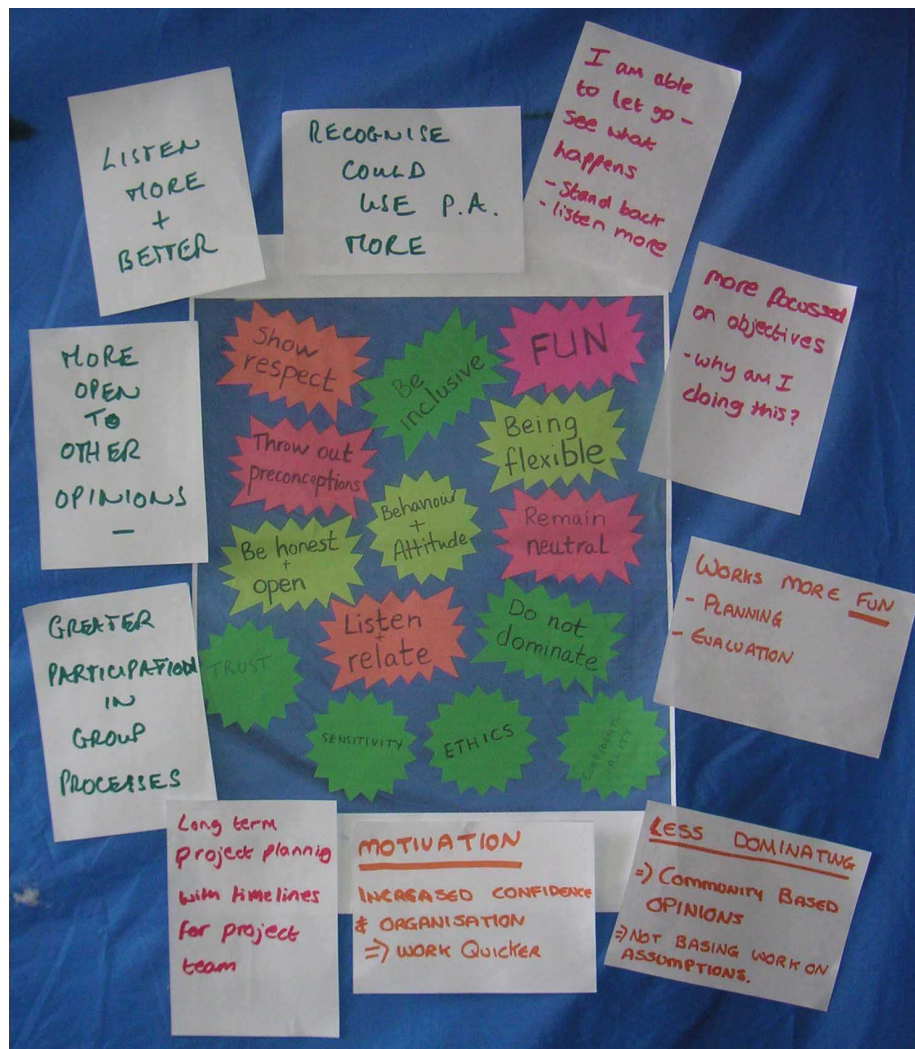 LISTEN
MORE
+
BETTER
RECOGNISE
COULD
USE P.A.
MORE
I am able
to let go -
see what
happens
- Stand back
- listen more
more focussed
on objectives
- why am I
doing this?
MORE
OPEN
TO
OTHER
OPINIONS
Show
respect
Be
inclusive
FUN
Throw out
preconceptions
Being
flexible
Behaviour
+
Attitude
Be honest
+
open
Remain
neutral
Listen
+
relate
Do not
dominate
TRUST
SENSITIVITY
ETHICS
CONFIDENTI-
ALITY
WORKS MORE FUN
- PLANNING
- EVALUATION
GREATER
PARTICIPATION
IN
GROUP
PROCESSES
Long term
project plannig
with timelines
for project
team
MOTIVATION
INCREASED CONFIDENCE
& ORGANISATION
=> WORK QUICKER
LESS DOMINATING
=> COMMUNITY BASED
OPINIONS
=> NOT BASING WORK ON
ASSUMPTIONS.